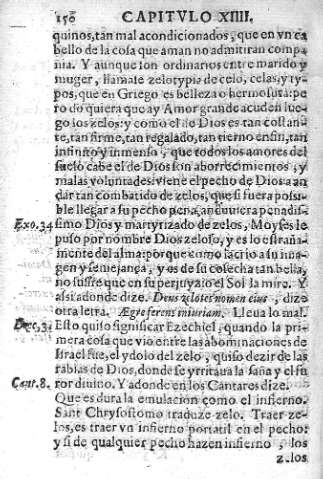 150 CAPITVLO XIIII.
quinos, tan mal acondicionados, que en vn ca
bello de la cosa que aman no admitiran compa
ñia. Y aunque son ordinarios entre marido y
muger, llamase zelotypia de celo, celas, y ty-
pos, que en Griego es belleza o hermosura: pe
ro do quiera que ay Amor grande acuden lue-
go los zelos: y como el de Dios es tan costan-
te, tan firme, tan regalado, tan tierno en fin, tan
infinito y inmenso, que todos los amores del
suelo cabe el de Dios son aborrecimientos, y
malas voluntades: viene el pecho de Dios a an
dar tan combatido de zelos, que si fuera possi-
ble llegar a su pecho pena, anduuiera penadis-
Exo. 34 simo Dios y martyrizado de zelos, Moyses le
puso por nombre Dios zeloso, y es lo estraña-
mente del alma: porque como la crio a su ima-
gen y semejança, y os de su cosecha tan bella,
no sufre que en su perjuyzio el Sol la mire. Y
assi adonde dize. Deus zelotes nomen eius, dize
otra letra. Ægre ferens iniuriam. Lleua lo mal.
Esto quiso significar Ezechiel, quando la pri-
mera cosa que vio entre las abominaciones de
Israel fue, el ydolo del zelo, quiso dezir de las
rabias de Dios, donde se yrritaua la saña y el fu
Cant. 8. ror diuino. Y adonde en los Cantares dize.
Que es dura la emulacion como el infierno.
Sant Chrysostomo traduze zelo. Traer ze-
los, es traer vn infierno portatil en el pecho:
y si de qualquier pecho hazen infierno, los
zelos